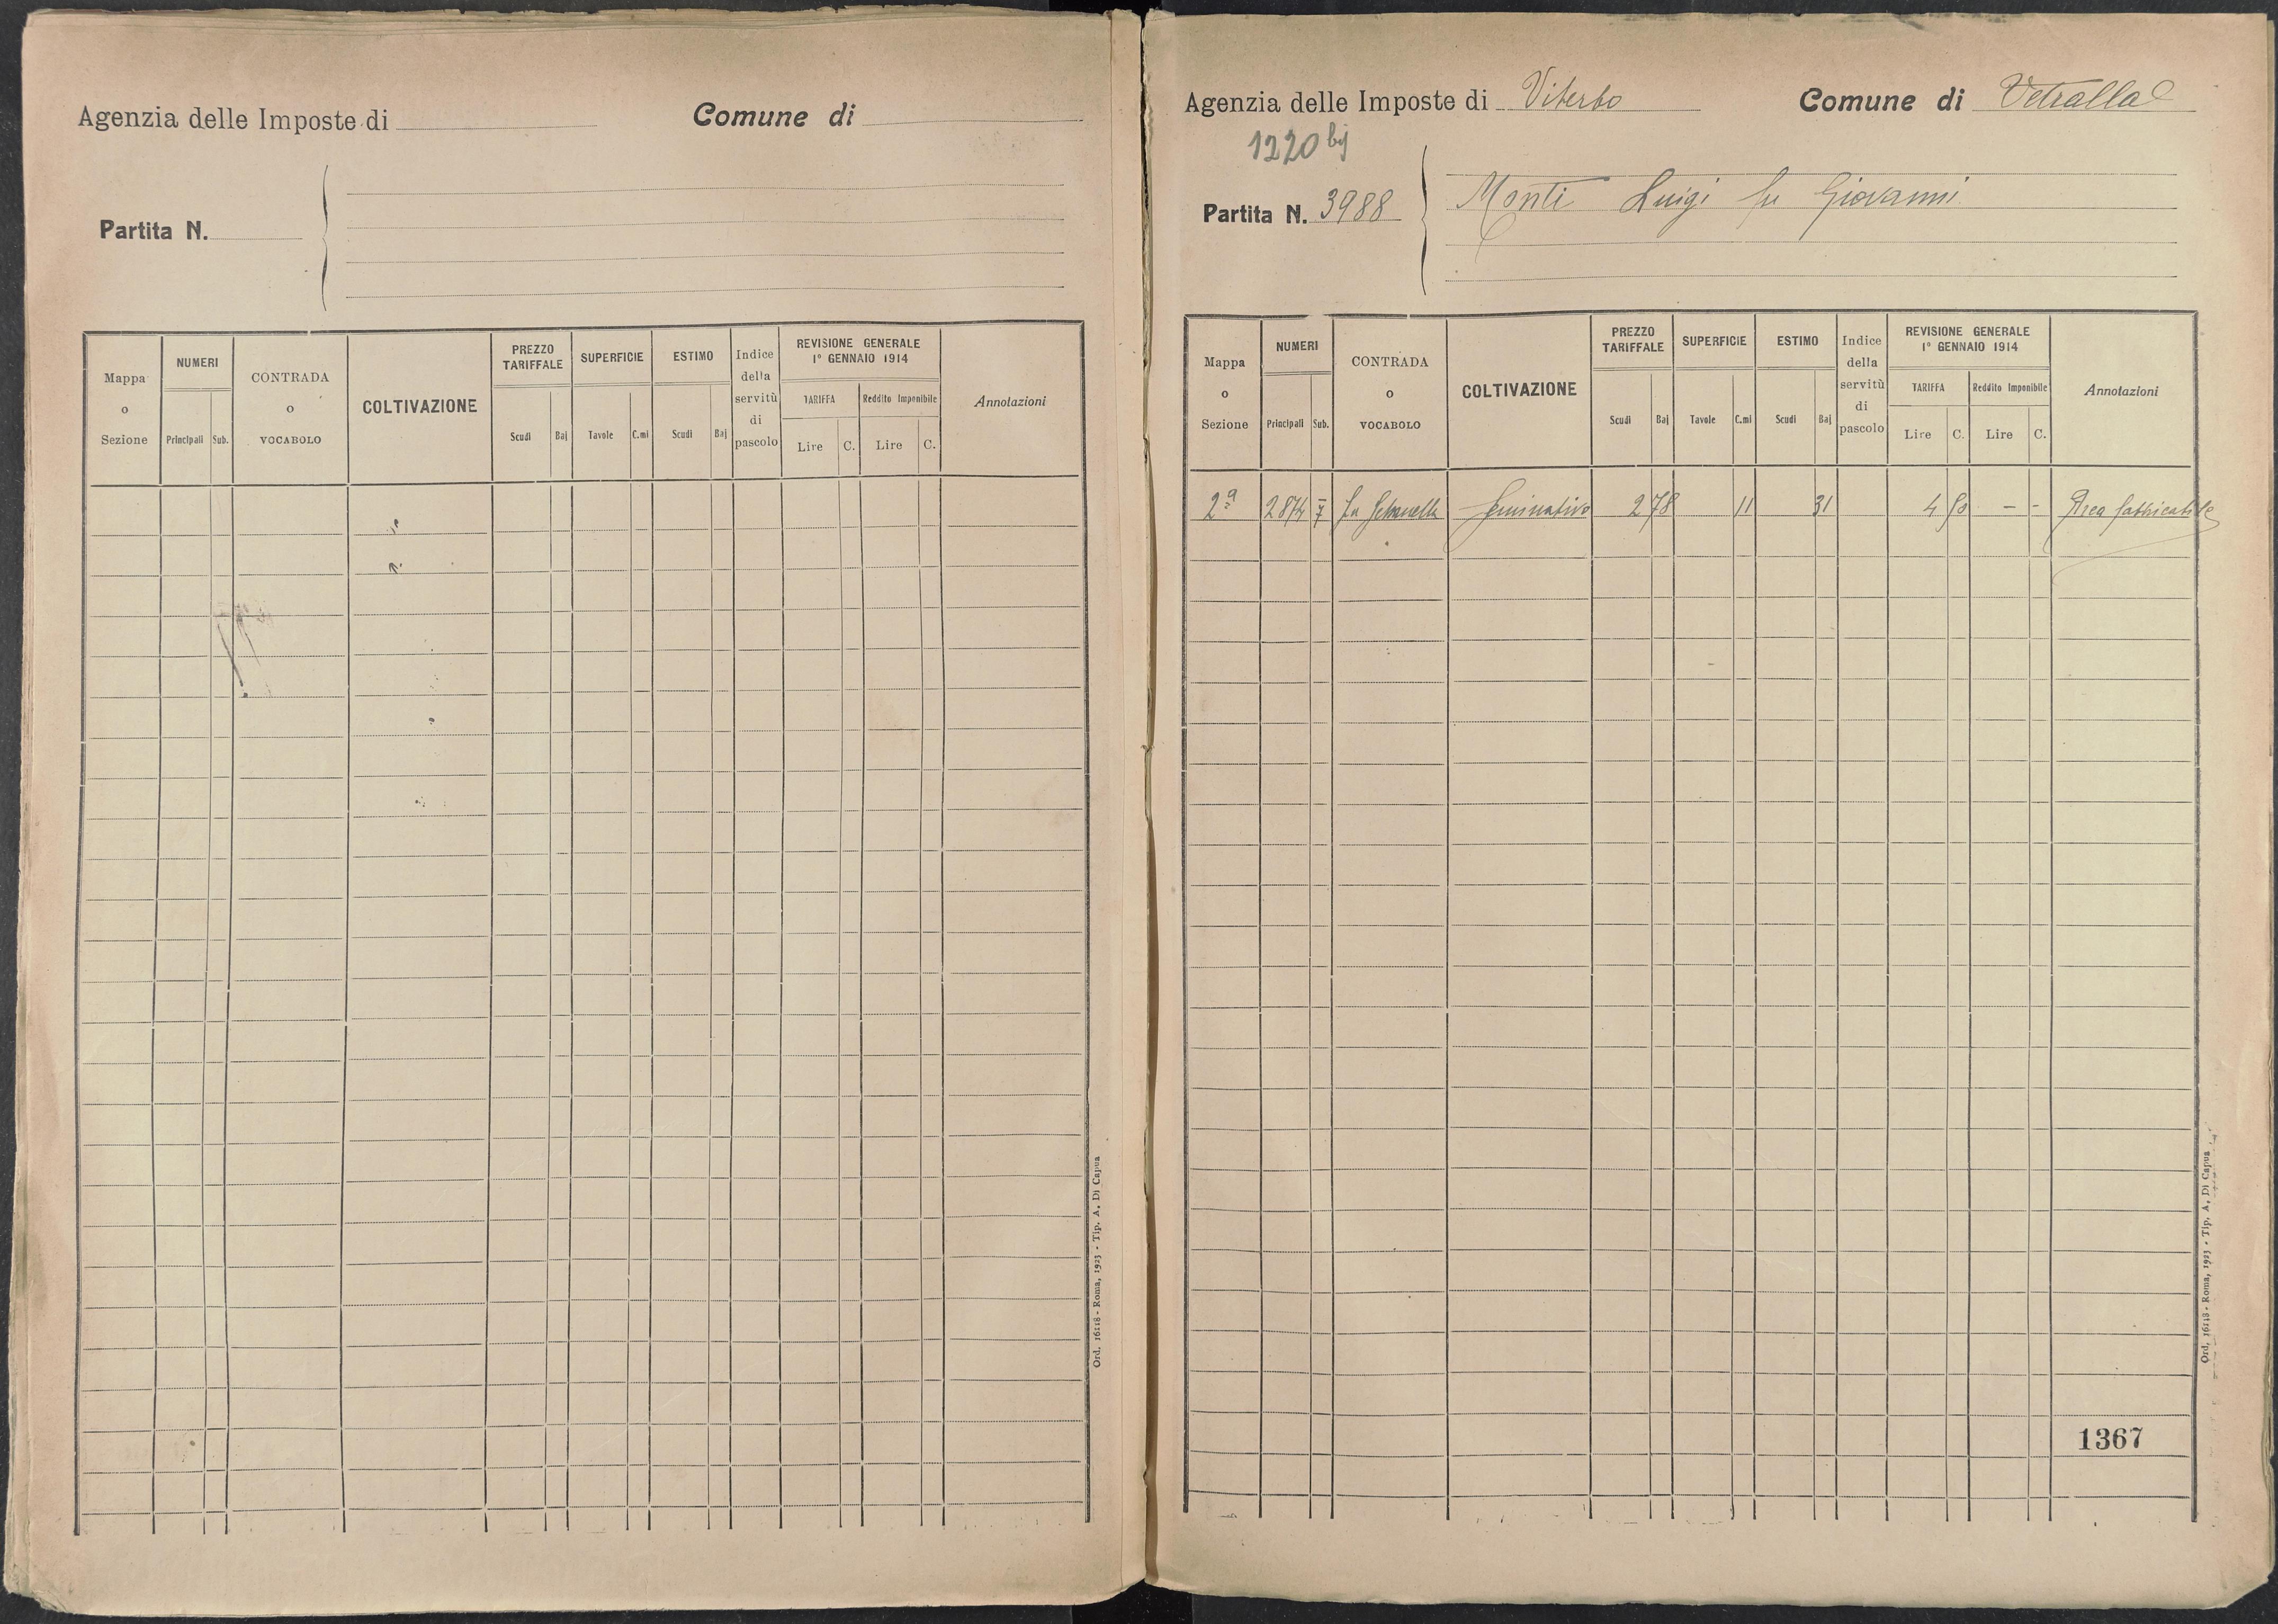 Agenzia delle Imposte di Comune di
Partita N.
Mappa o Sezione NUMERI Principali Sub. CONTRADA o VOCABOLO COLTIVAZIONE PREZZO TARIFFALE Scudi Baj SUPERFICIE Tavole C.mi ESTIMO Scudi Baj Indice della servitù di pascolo REVISIONE GENERALE 1° GENNAIO 1914 TARIFFA Lire C. Reddito Imponibile Lire C. Annotazioni
Ord. 16118 - Roma, 1923 - Tip. A. Di Capua
Agenzia delle Imposte di Viterbo Comune di Vetralla
1220 bis
Partita N. 3988 Monti Luigi fu Giovanni
Mappa o Sezione NUMERI Principali Sub. CONTRADA o VOCABOLO COLTIVAZIONE PREZZO TARIFFALE Scudi Baj SUPERFICIE Tavole C.mi ESTIMO Scudi Baj Indice della servitù di pascolo REVISIONE GENERALE 1° GENNAIO 1914 TARIFFA Lire C. Reddito Imponibile Lire C. Annotazioni
2ª 2874 Seminativo 2 78 11 31 4 50 - - Area fabbricabile
1367
Ord. 16118 - Roma, 1923 - Tip. A. Di Capua